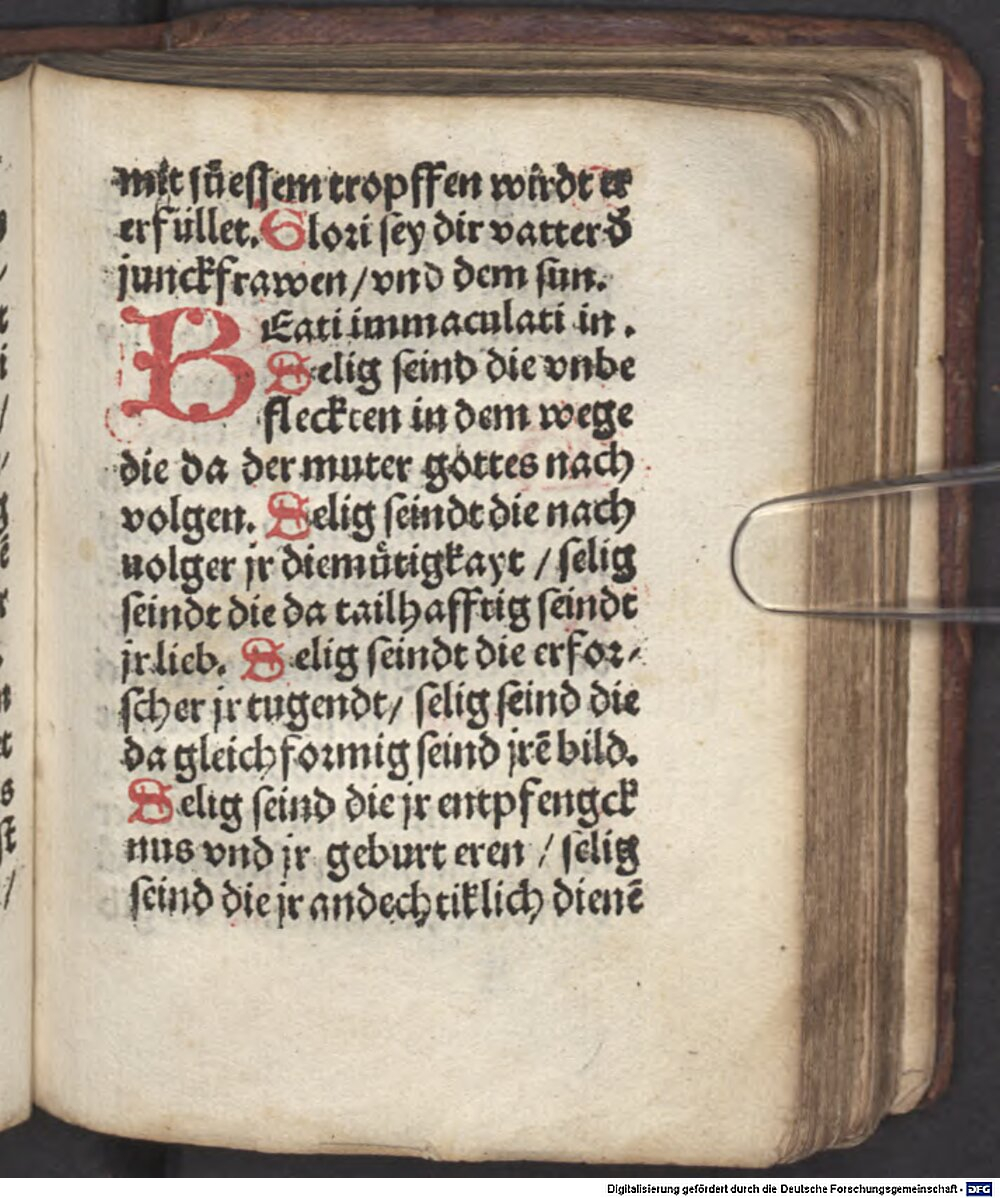 mit süessem tropffen wirdt er
erfüllet. Glori sey dir vatter d̄
junckfrawen / vnd dem sun.
BEati immaculati in.
Selig seind die vnbe
fleckten in dem wege
die da der muter gottes nach
volgen. Selig seindt die nach
uolger jr diemütigkayt / selig
seindt die da tailhafftig seindt
jr lieb. Selig seindt die erfor⸗
scher jr tugendt / selig seind die
da gleichformig seind jrē bild.
Selig seind die jr entpfengck
nus vnd jr geburt eren / selig
seind die jr andechtiklich dienē
Digitalisierung gefördert durch die Deutsche Forschungsgemeinschaft - DFG